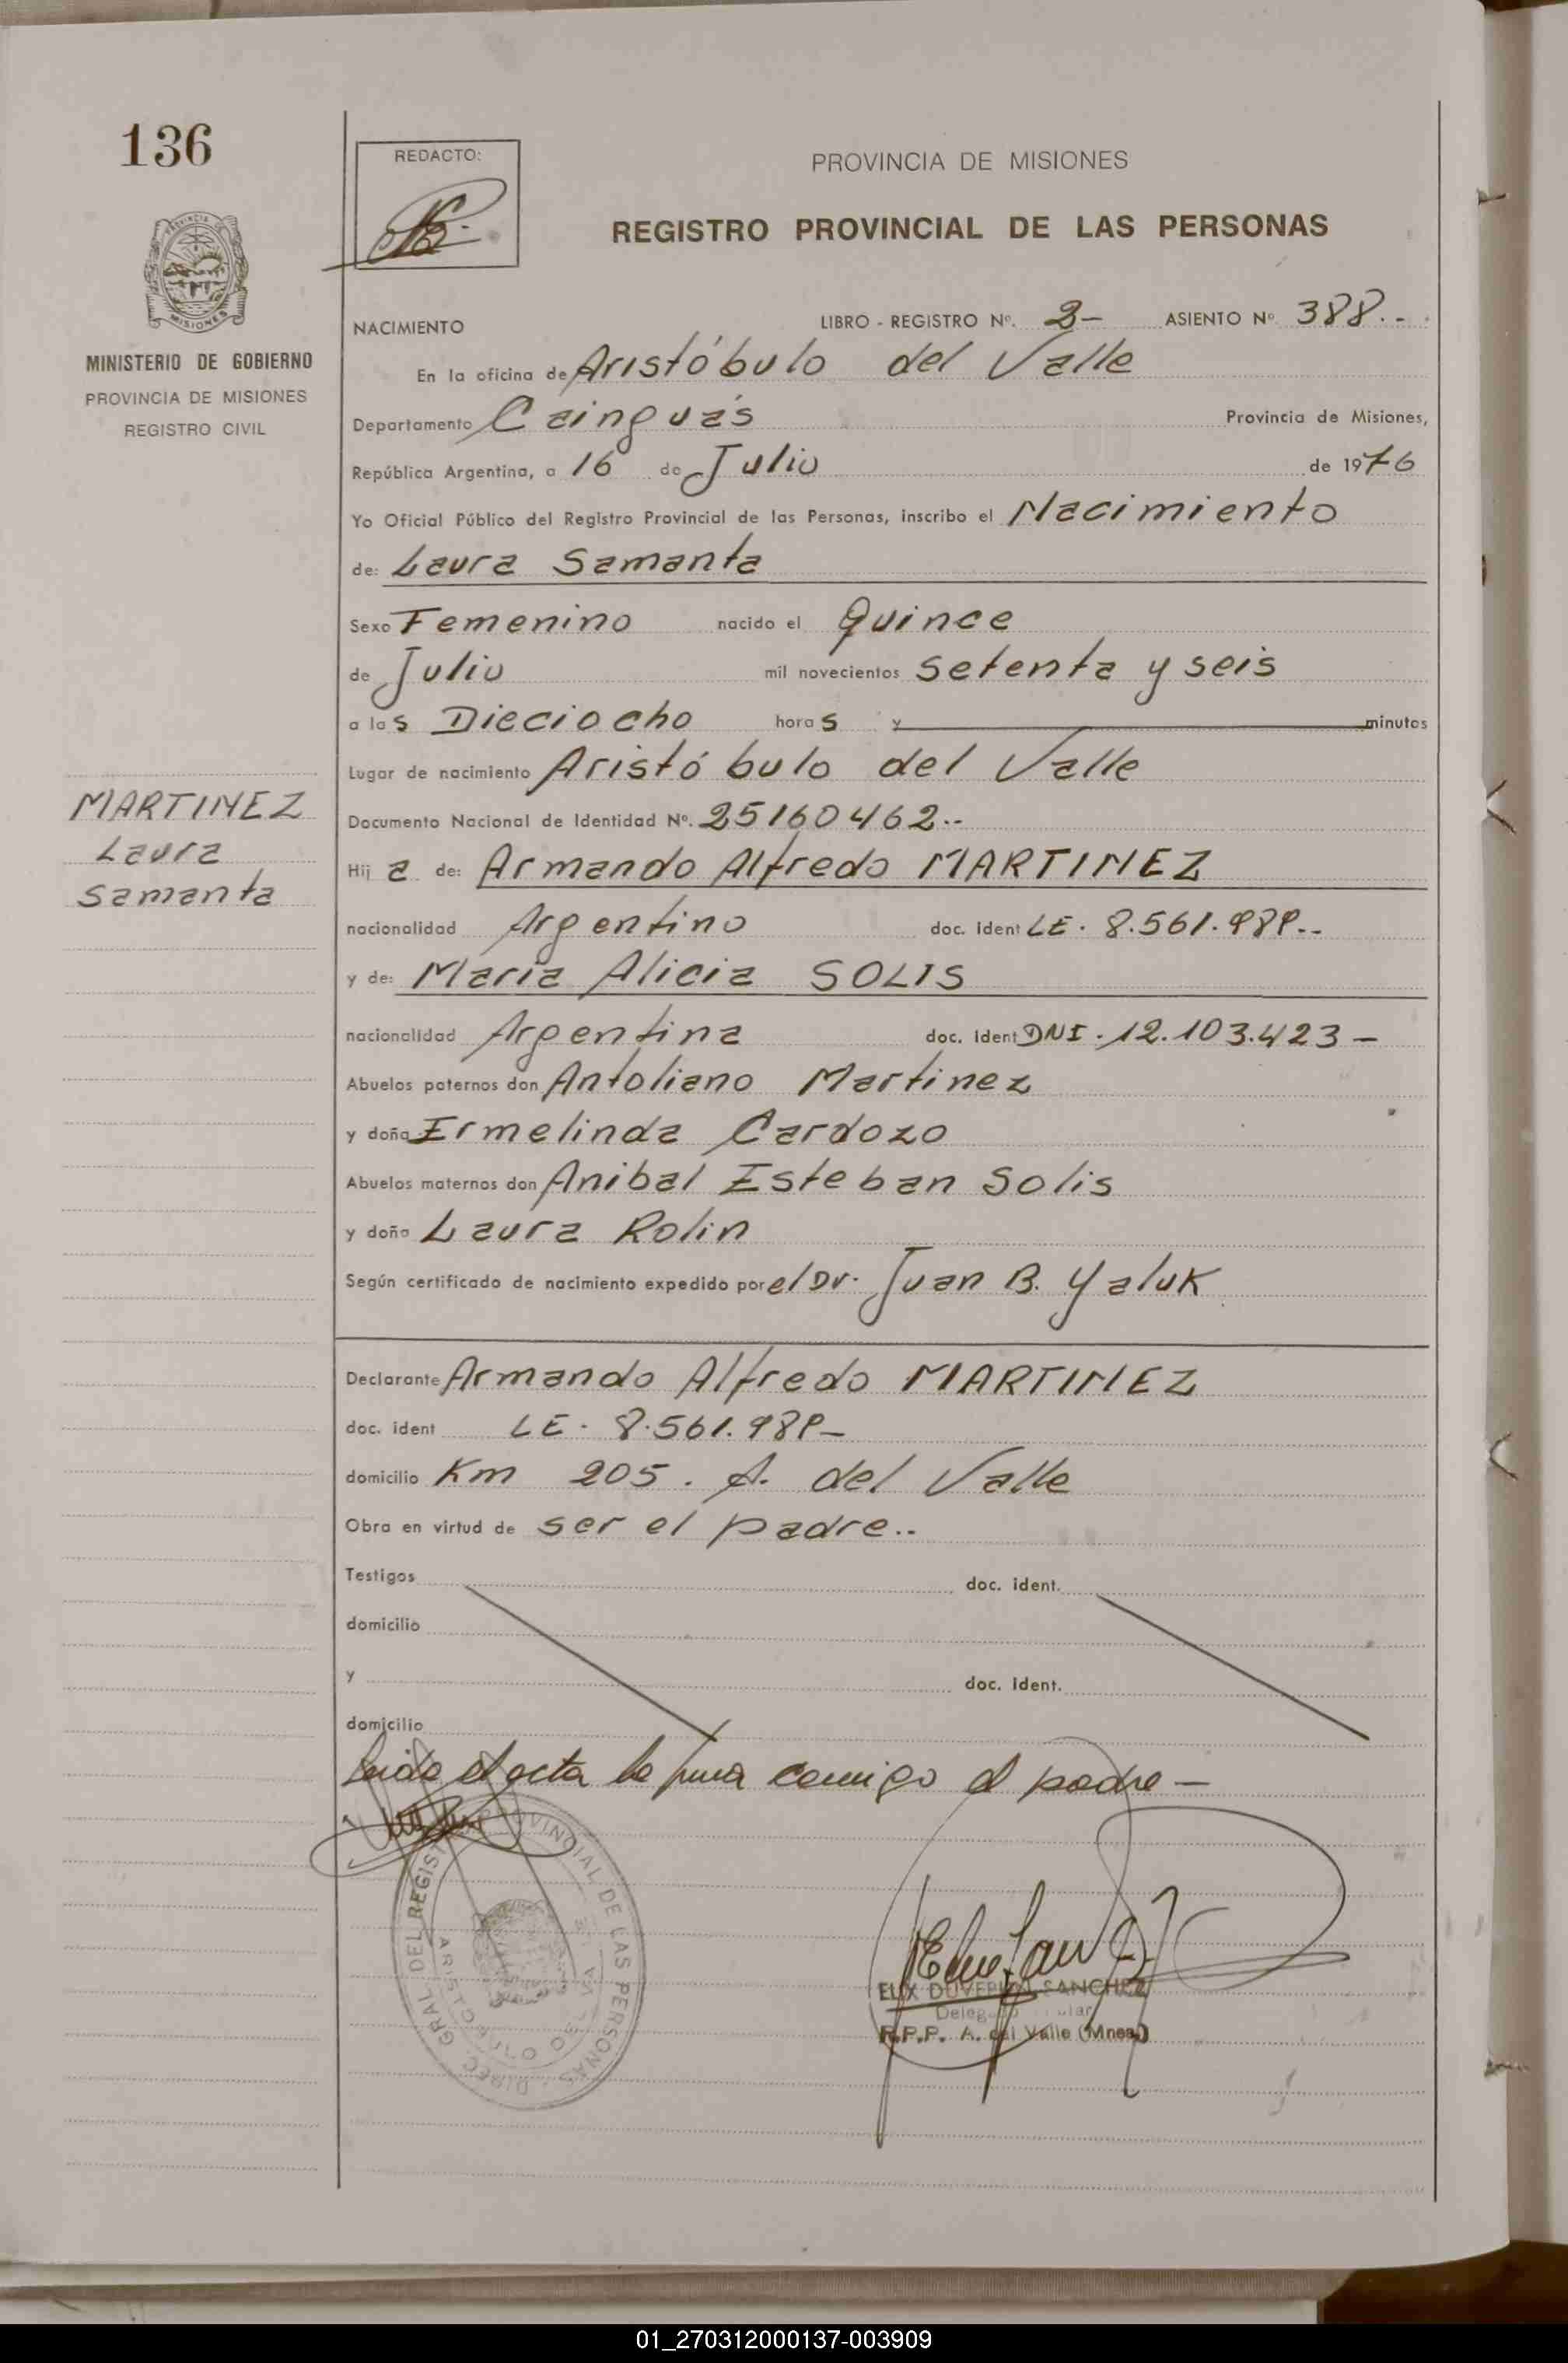 136
REDACTO:
PROVINCIA DE MISIONES
REGISTRO PROVINCIAL DE LAS PERSONAS
PROVINCIA
MISIONES
MINISTERIO DE GOBIERNO
PROVINCIA DE MISIONES
REGISTRO CIVIL
NACIMIENTO LIBRO - REGISTRO Nº. 2- ASIENTO Nº 388..
En la oficina de Aristóbulo del Valle
Departamento Cainguás Provincia de Misiones,
República Argentina, a 16 de Julio de 1976
Yo Oficial Público del Registro Provincial de las Personas, inscribo el Nacimiento
de: Laura Samanta
Sexo Femenino nacido el Quince
de Julio mil novecientos setenta y seis
a las Dieciocho horas y minutos
Lugar de nacimiento Aristóbulo del Valle
MARTINEZ
Laura
Samanta
Documento Nacional de Identidad Nº. 25160462..
Hija de: Armando Alfredo MARTINEZ
nacionalidad Argentino doc. ident LE. 8.561.989..
y de: María Alicia SOLIS
nacionalidad Argentina doc. ident DNI. 12.103.423-
Abuelos paternos don Antoliano Martinez
y doña Ermelinda Cardozo
Abuelos maternos don Anibal Esteban Solis
y doña Laura Rolin
Según certificado de nacimiento expedido por el Dr. Juan B. Yaluk
Declarante Armando Alfredo MARTINEZ
doc. ident LE. 8.561.989-
domicilio Km 205. A. del Valle
Obra en virtud de ser el padre..
Testigos doc. ident.
domicilio
y doc. ident.
domicilio
Leida el acta la firma conmigo el padre-
DIREC. GRAL DEL REGIST PROVINCIAL DE LAS PERSONAS
ELIX SANCHEZ
R.P.P. A. del Valle (Mnes.)
01_270312000137-003909